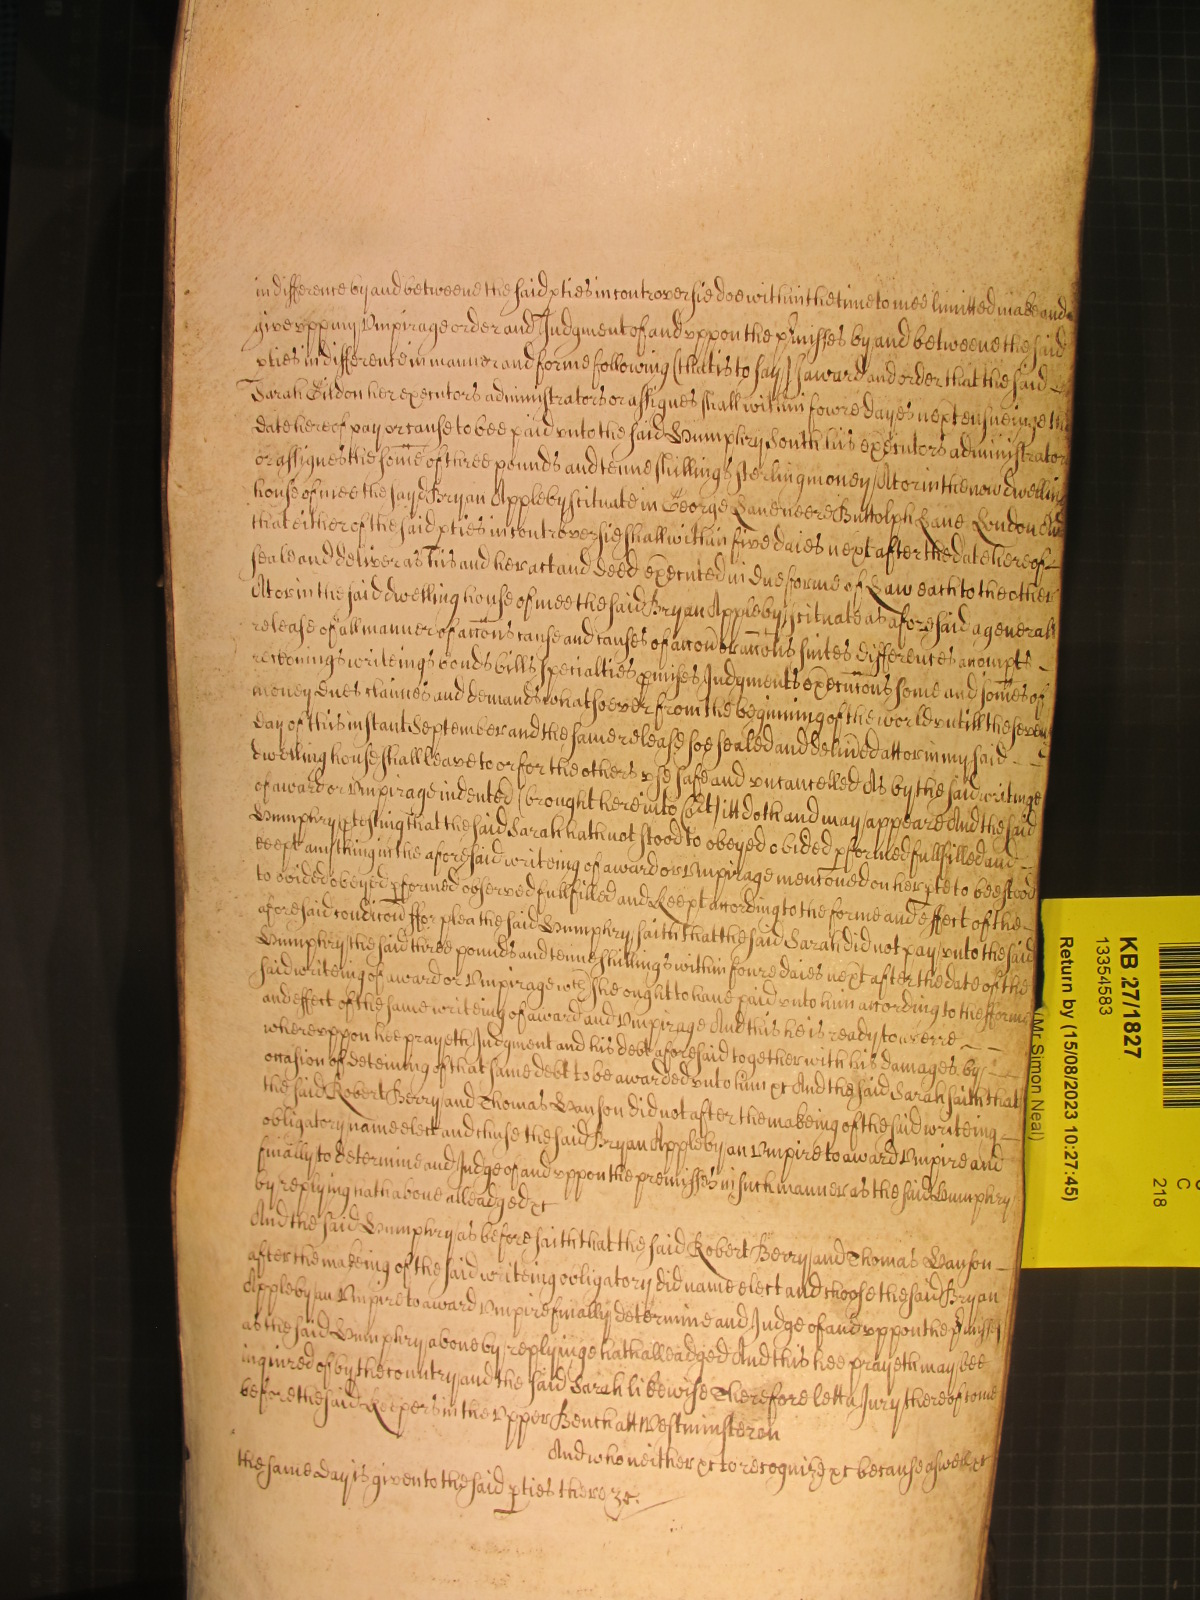 indifference by and betweene the said pties in controversie doe within the time to mee limitted make and
give upp my Umpirage order and Judgment of and uppon the pmisses by and betweene the said
pties in difference in manner and forme following (that is to say) I award and order that the said
Sarah Gildon her executors administrators or assignes shall within foure dayes next ensueinge the
date hereof pay or cause to bee paid unto the said Humphry South his executors administrators
or assignes the some of three pounds and tenne shillings sterling money Att or in the now dwelling
house of mee the sayd Bryan Appleby scituate in George Lane neere Buttolph Lane London And
that either of the said pties in controversie shall within five daies next after the date hereof
seale and deliver as his and her act and deed executed in due forme of Law each to the other
Att or in the said dwelling house of mee the said Bryan Appleby scituate as aforesaid a generall
release of all manner of accons cause and causes of accon suites differences accompts
reckonings writeings bonds bills specialties pmises Judgments execucons some and somes of
money dues claimes and demands whatsoever from the beginning of the world untill the seven
day of this instant September and the same release soe sealed and delived att or in my said
dwelling house shall leave to or for the others use safe and uncancelled As by the said writinge
of award or Umpirage indented (brought here into Court) itt doth and may appeare And the said
Humphry ptesting that the said Sarah hath not stood to obeyed obided pformed fullfilled and
keept any thing in the aforesaid writeing of award or Umpirage menconed on her pte to bee stood
to obided obeyed pformed observed fullfilled and keept according to the forme and effect of the
aforesaid condicon ffor plea the said Humphry saith that the said Sarah did not pay unto the said
Humphry the said three pounds and tenne shillings within foure daies next after the date of the
said writeing of award or Umpirage wch she ought to have paid unto him according to the fforme
and effect of the same writeing of award and Umpirage And this he is ready to averre
whereuppon hee prayeth Judgment and his debt aforesaid together with his damages by
occasion of deteining of that same debt to be awarded unto him &c And the said Sarah saith that
the said Robert Berry and Thomas Hanson did not after the makeing of the said writeing
obligatory name elect and chuse the said Bryan Appleby an Umpire to award Umpire and
finally to determine and Judge of and uppon the premisses in such manner as the said Humphry
by replying hath above alleadged &c
And the said Humphry as before saith that the said Robert Berry and Thomas Hanson
after the makeing of the said writeing obligatory did name elect and choose the said Bryan
Appleby an Umpire to award Umpire finally determine and Judge of and uppon the pmisses
as the said Humphry above by replyinge hath alleadged And this hee prayeth may bee
inquired of by the country and the said Sarah likewise Therefore lett a Jury thereof come
before the said Keepers in the Upper Bench att Westminster on
And who neither &c to recognize &c because aswell &c
the same day is given to the said pties there &c.
KB 27/1827
13354583
Return by (15/08/2023 10:27:45)
(Mr Simon Neal)
C
218